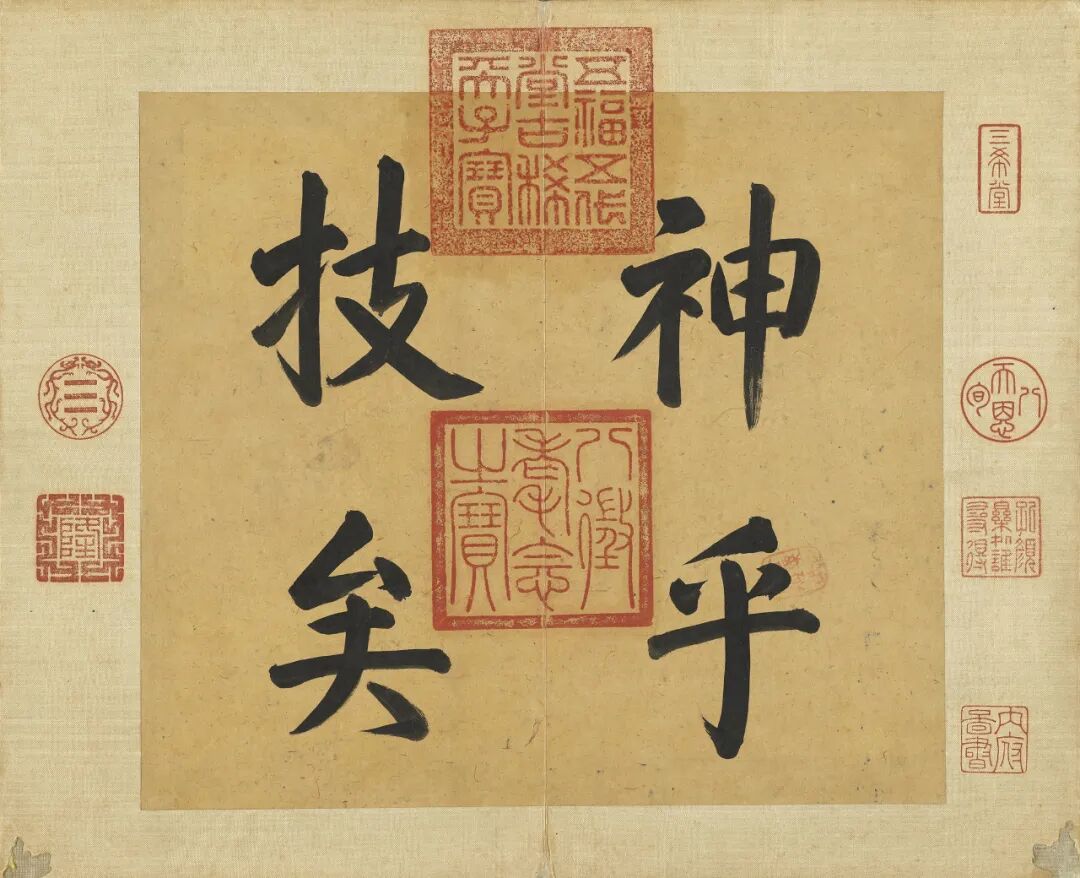 神乎
技矣
五福五代
堂古稀
天子寶
八徵
耄念
之寶
三希堂
天恩八旬
内府
圖書
隆